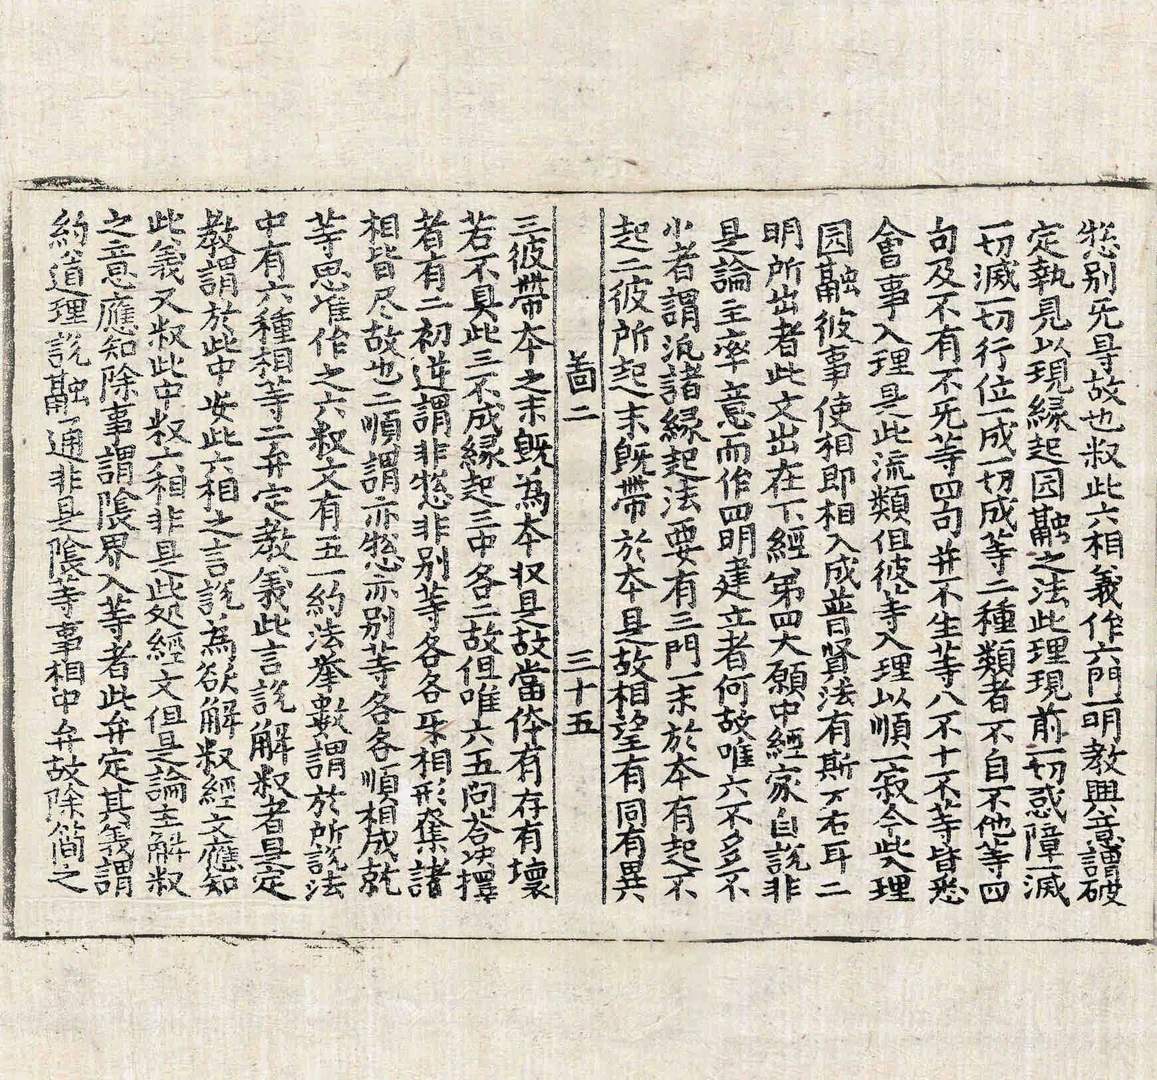 惣別旡㝵故也叔此六相義作六門一明教興意謂破
定執見以現縁起园融之法此理現前一切惑障一滅
一切滅一切行位一成一切成等二種類者不自不他等四
句及不有不旡等四句并不生等八不十一不等皆悉
會事入理是此流類但彼等入理以順一寂今此入理
园融彼事使相即相入成普賢法有斯不右耳二
明所出者此文出在下經第四大願中經家自説非
是論主率意而作四明建立者何故唯六不多不
少者謂汎諸縁起法要有三門一末於本有起不
起二彼所起末旣帶於本具故相望有同有異
啚二 三十五
三彼帶本之末旣爲本収具故當体有存有壞
若不具此三不成縁起三中各二故但唯六五问荅决擇
者有二初逆謂非惣非别等各各互相形奪諸
相皆尽故也二順謂亦惣亦别等各各順相成就
等思准作之六叔文有五一約法挙數謂於所説法
中有六種相等二弁定教義此言説解叔者是定
教謂於此中安此六相之言説為欲解叔經文應知
此義又叔此中叔六相非是此処經文但是論主解叔
之意應知除事謂隂界入等者此弁定其義謂
約道理説融通非是隂等事相中弁故除簡之